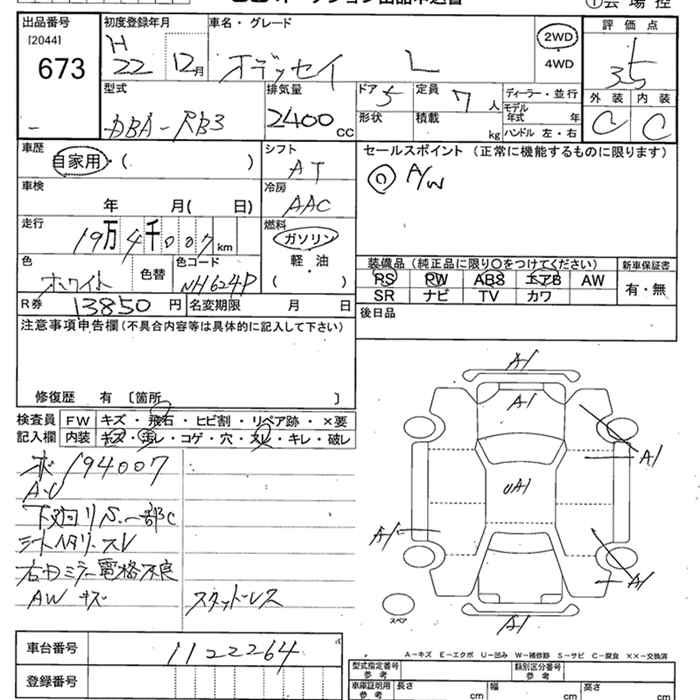 出品番号 初度登録年月 車名・グレード 評価点
[2044] H 2WD
673 22 12月 オデッセイ L 4WD 3.5
型式 排気量 ドア 5 定員 7人 ディーラー・並行 外装 内装
DBA-RB3 2400 cc 形状 積載 kg モデル年式 年 C C
ハンドル 左・右
車歴 シフト セールスポイント (正常に機能するものに限ります)
自家用・( ) AT ◎ A/W
車検 冷房
年 月( 日) AAC
走行 燃料
19万4千007km ガソリン
色 色替 色コード 軽・油
ホワイト NH624P ( )
装備品 (純正品に限り○をつけてください) 新車保証書
RS RW ABS エアB AW 有・無
SR ナビ TV カワ
R券 13850円 名変期限 月 日
後日品
注意事項申告欄(不具合内容等は具体的に記入して下さい)
修復歴 有 〔箇所 〕
検査員 FW キズ・飛石・ヒビ割・リペア跡・×要
記入欄 内装 キズ・汚レ・コゲ・穴・スレ・キレ・破レ
ホ 194007
A・U
下廻りS、一部C
シートヘタリ・スレ
右ドミラー電格不良
AW キズ スタッドレス
A1
A1
A1
UA1
A1
A1
A1
スペア
A-キズ E-エクボ U-凹み W-補修跡 S-サビ C-腐食 ××-交換済
車台番号 1122264
登録番号
型式指定番号 参考 類別区分番号 参考
車庫証明用 参考 長さ cm 幅 cm 高さ cm